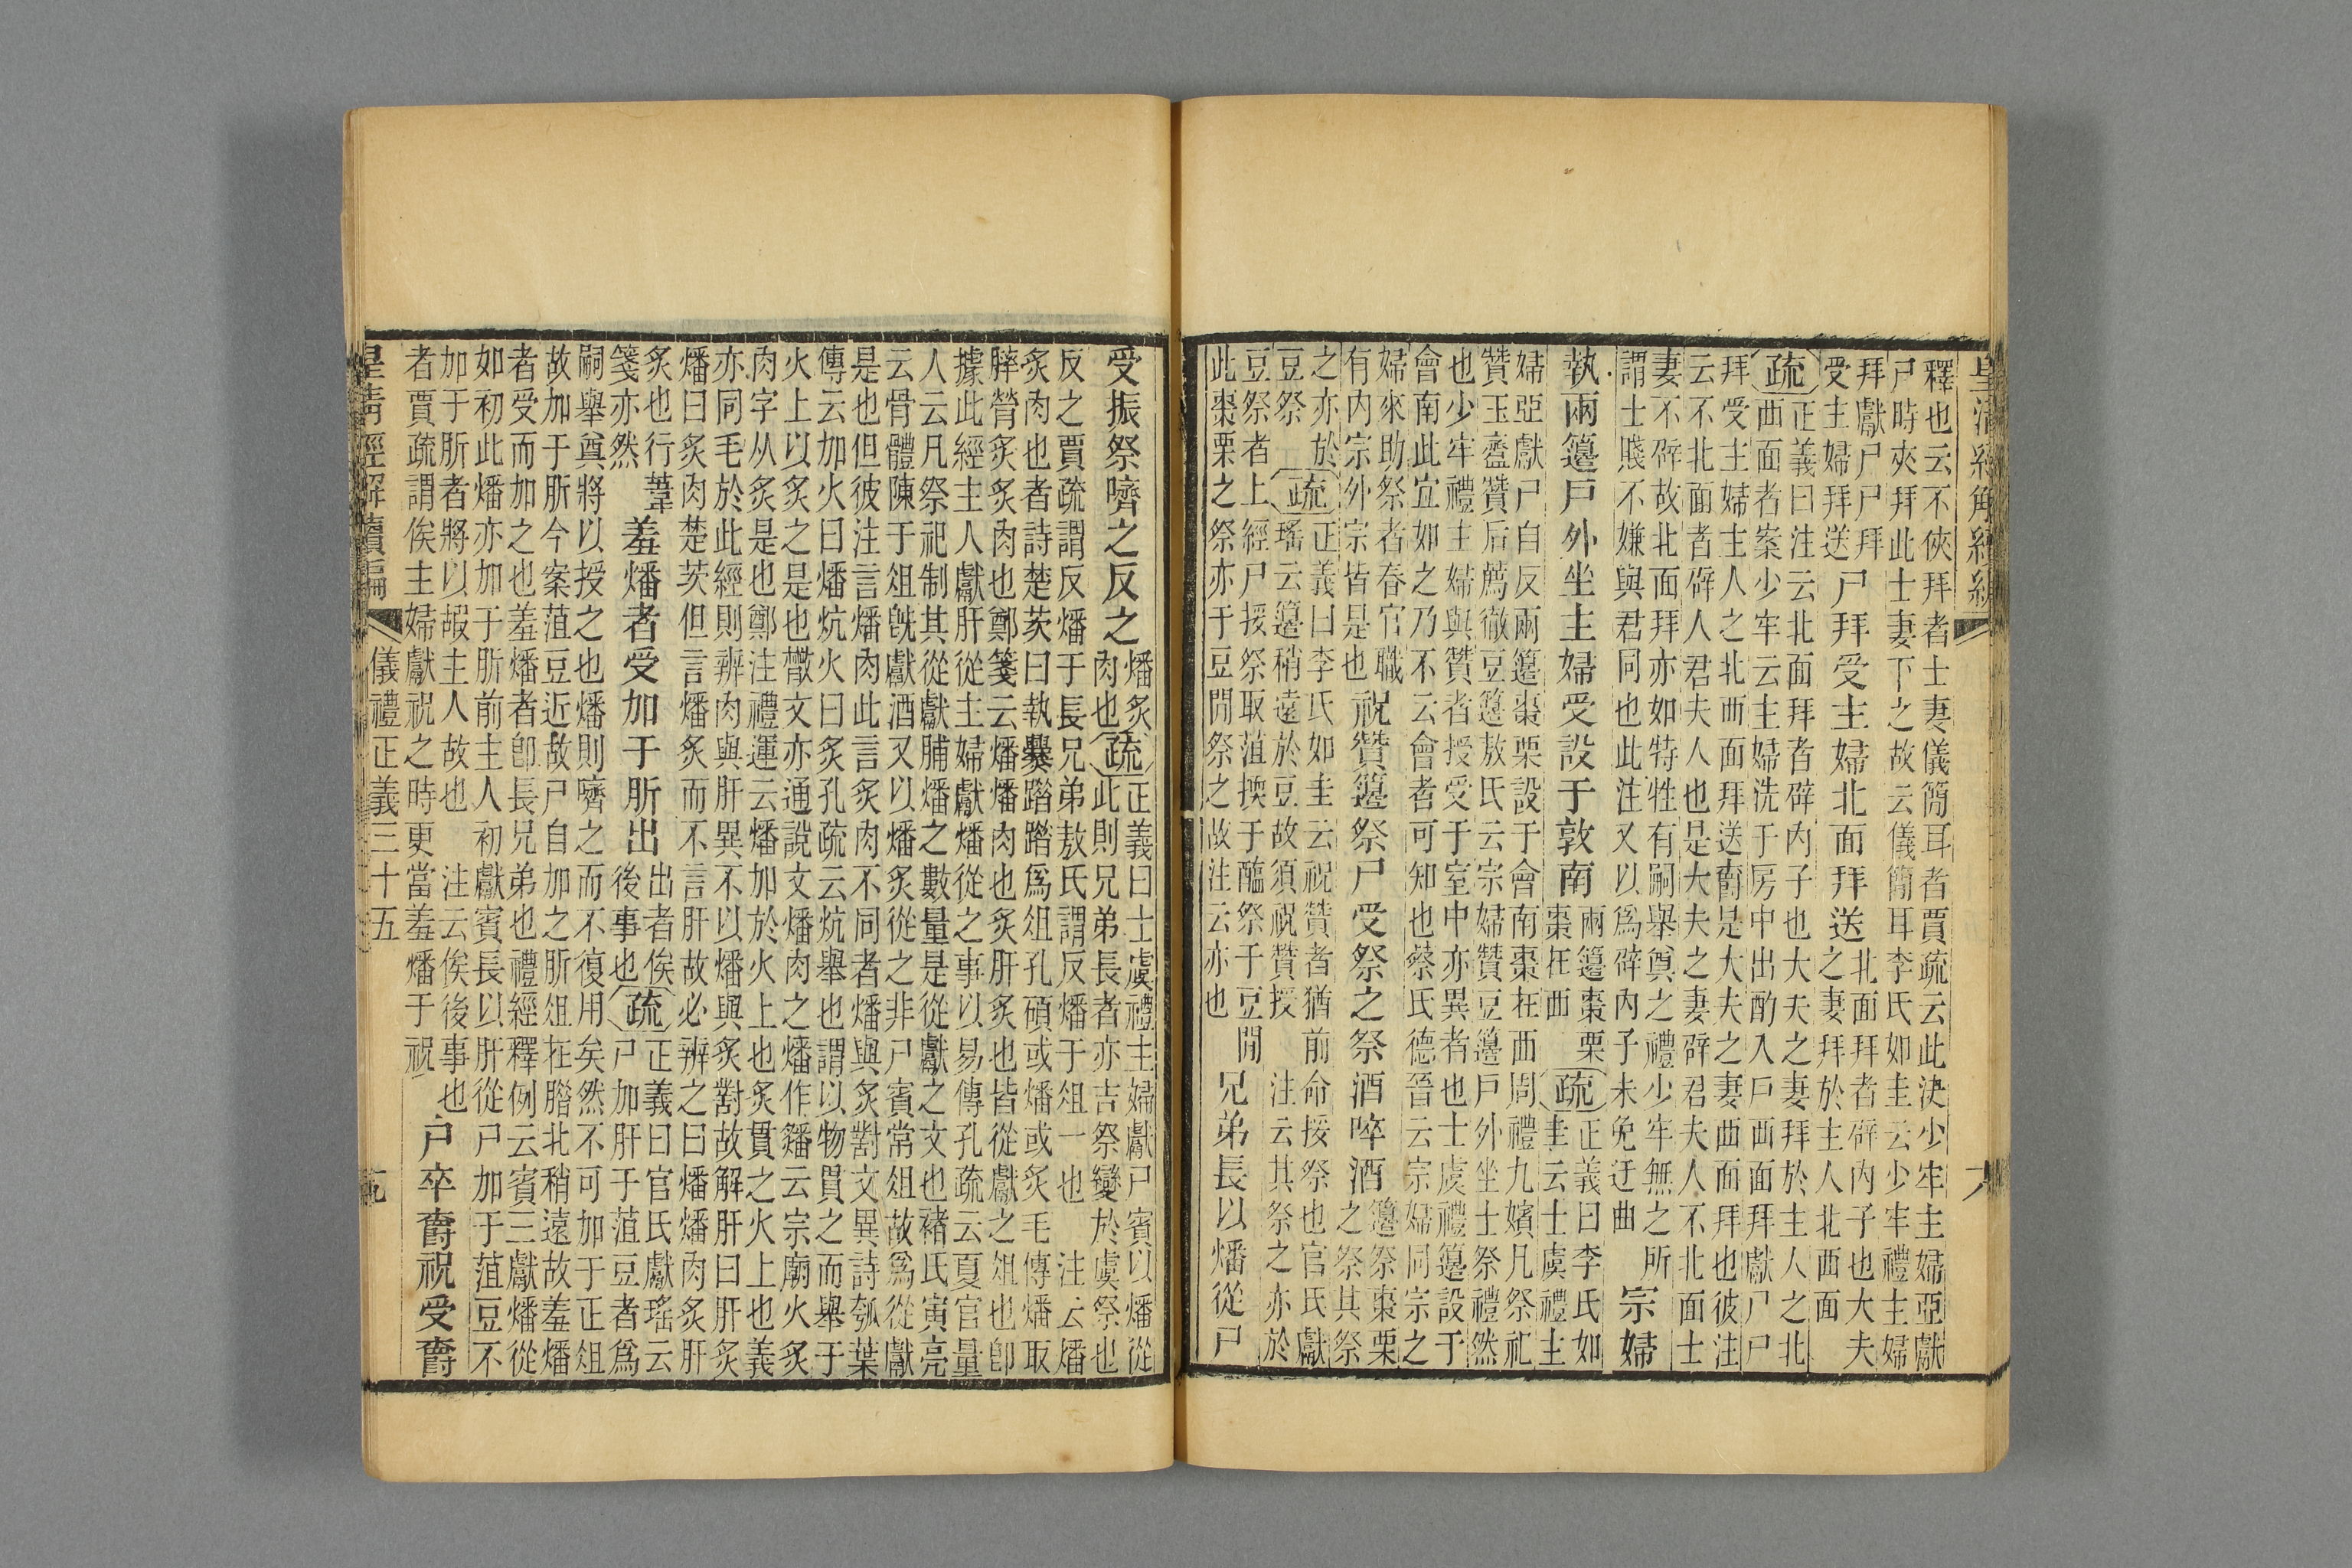 皇清經解續編
釋也云不俠拜者士妻儀簡耳者賈疏云此決少牢主婦亞獻
尸時夾拜此士妻下之故云儀簡耳李氏如圭云少牢禮主婦
拜獻尸尸拜
受主婦拜送尸拜受主婦北面拜送北面拜者辟內子也大夫
之妻拜於主人北西面
疏正義曰注云北面拜者辟內子也大夫之妻拜於主人之北
西面者案少牢云主婦洗于房中出酌入戶西面拜獻尸尸
拜受主婦主人之北西面拜送爵是大夫之妻西面拜也彼注
云不北面者辟人君夫人也是大夫之妻辟君夫人不北面士
妻不辟故北面拜亦如特牲有嗣舉奠之禮少牢無之所
謂士賤不嫌與君同也此注又以爲辟內子未免迂曲宗婦
執兩籩戶外坐主婦受設于敦南兩籩棗栗
棗在西疏正義曰李氏如
圭云士虞禮主
婦亞獻尸自反兩籩棗栗設于會南棗在西周禮九嬪凡祭祀
贊玉齍贊后薦徹豆籩敖氏云宗婦贊豆籩戶外坐士祭禮然
也少牢禮主婦與贊者授受于室中亦異者也士虞禮籩設于
會南此宜如之乃不云會者可知也蔡氏德晉云宗婦同宗之
婦來助祭者春官職
有內宗外宗皆是也祝贊籩祭尸受祭之祭酒啐酒籩祭棗栗
之祭其祭
之亦於
豆祭疏正義曰李氏如圭云祝贊者猶前命挼祭也官氏獻
瑤云籩稍遠於豆故須祝贊授注云其祭之亦於
豆祭者上經尸挼祭取菹擩于醢祭于豆閒
此棗栗之祭亦于豆閒祭之故注云亦也兄弟長以燔從尸
受振祭嚌之反之燔炙
肉也疏正義曰士虞禮主婦獻尸賓以燔從
此則兄弟長者亦吉祭變於虞祭也
反之賈疏謂反燔于長兄弟敖氏謂反燔于俎一也注云燔
炙肉也者詩楚茨曰執爨踖踖爲俎孔碩或燔或炙毛傳燔取
膟膋炙炙肉也鄭箋云燔燔肉也炙肝炙也皆從獻之俎也卽
據此經主人獻肝從主婦獻燔從之事以易傳孔疏云夏官量
人云凡祭祀制其從獻脯燔之數量是從獻之文也褚氏寅亮
云骨體陳于俎旣獻酒又以燔炙從之非尸賓常俎故爲從獻
是也但彼注言燔肉此言炙肉不同者燔與炙對文異詩瓠葉
傳云加火曰燔炕火曰炙孔疏云炕舉也謂以物貫之而舉于
火上以炙之是也散文亦通說文燔肉之燔作繙云宗廟火炙
肉字从炙是也鄭注禮運云燔加於火上也炙貫之火上也義
亦同毛於此經則辨肉與肝異不以燔與炙對故解肝曰肝炙
燔曰炙肉楚茨但言燔炙而不言肝故必辨之曰燔燔肉炙肝
炙也行葦
箋亦然羞燔者受加于肵出出者俟
後事也疏正義曰官氏獻瑤云
尸加肝于菹豆者爲
嗣舉奠將以授之也燔則嚌之而不復用矣然不可加于正俎
故加于肵今案菹豆近故尸自加之肵俎在腊北稍遠故羞燔
者受而加之也羞燔者卽長兄弟也禮經釋例云賓三獻燔從
如初此燔亦加于肵前主人初獻賓長以肝從尸加于菹豆不
加于肵者將以嘏主人故也注云俟後事也
者賈疏謂俟主婦獻祝之時更當羞燔于祝尸卒爵祝受爵
皇清經解續編
儀禮正義三十五